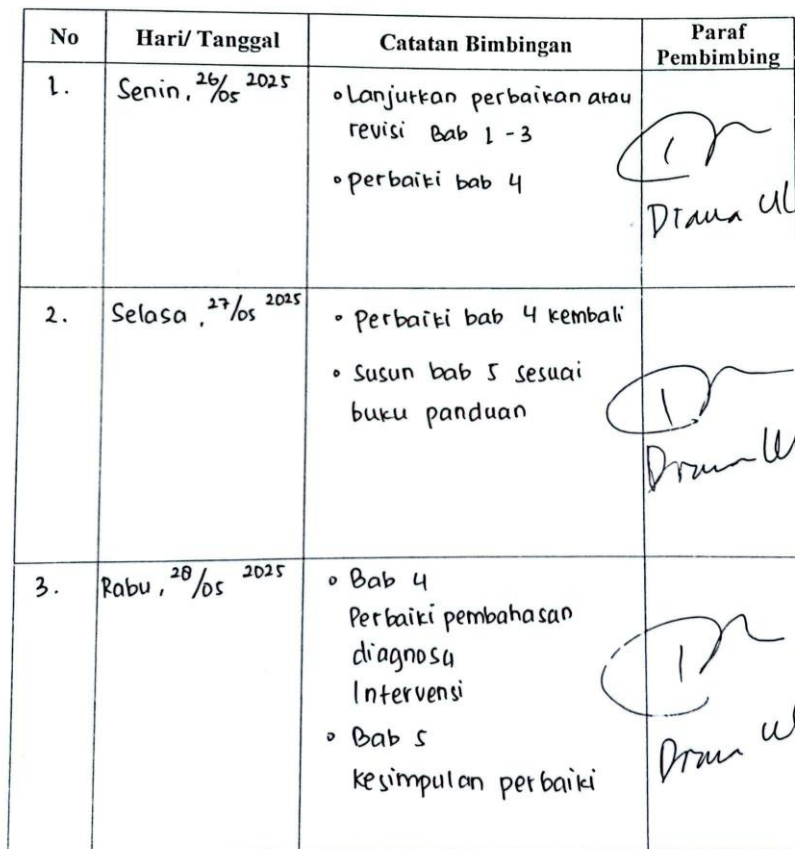 No Hari/ Tanggal Catatan Bimbingan Paraf Pembimbing
1. Senin, 26/05 2025
• Lanjutkan perbaikan atau
revisi Bab 1 - 3
• perbaiki bab 4
2. Selasa, 27/05 2025
• Perbaiki bab 4 kembali
• Susun bab 5 sesuai
buku panduan
3. Rabu, 28/05 2025
• Bab 4
Perbaiki pembahasan
diagnosa
Intervensi
• Bab 5
kesimpulan perbaiki